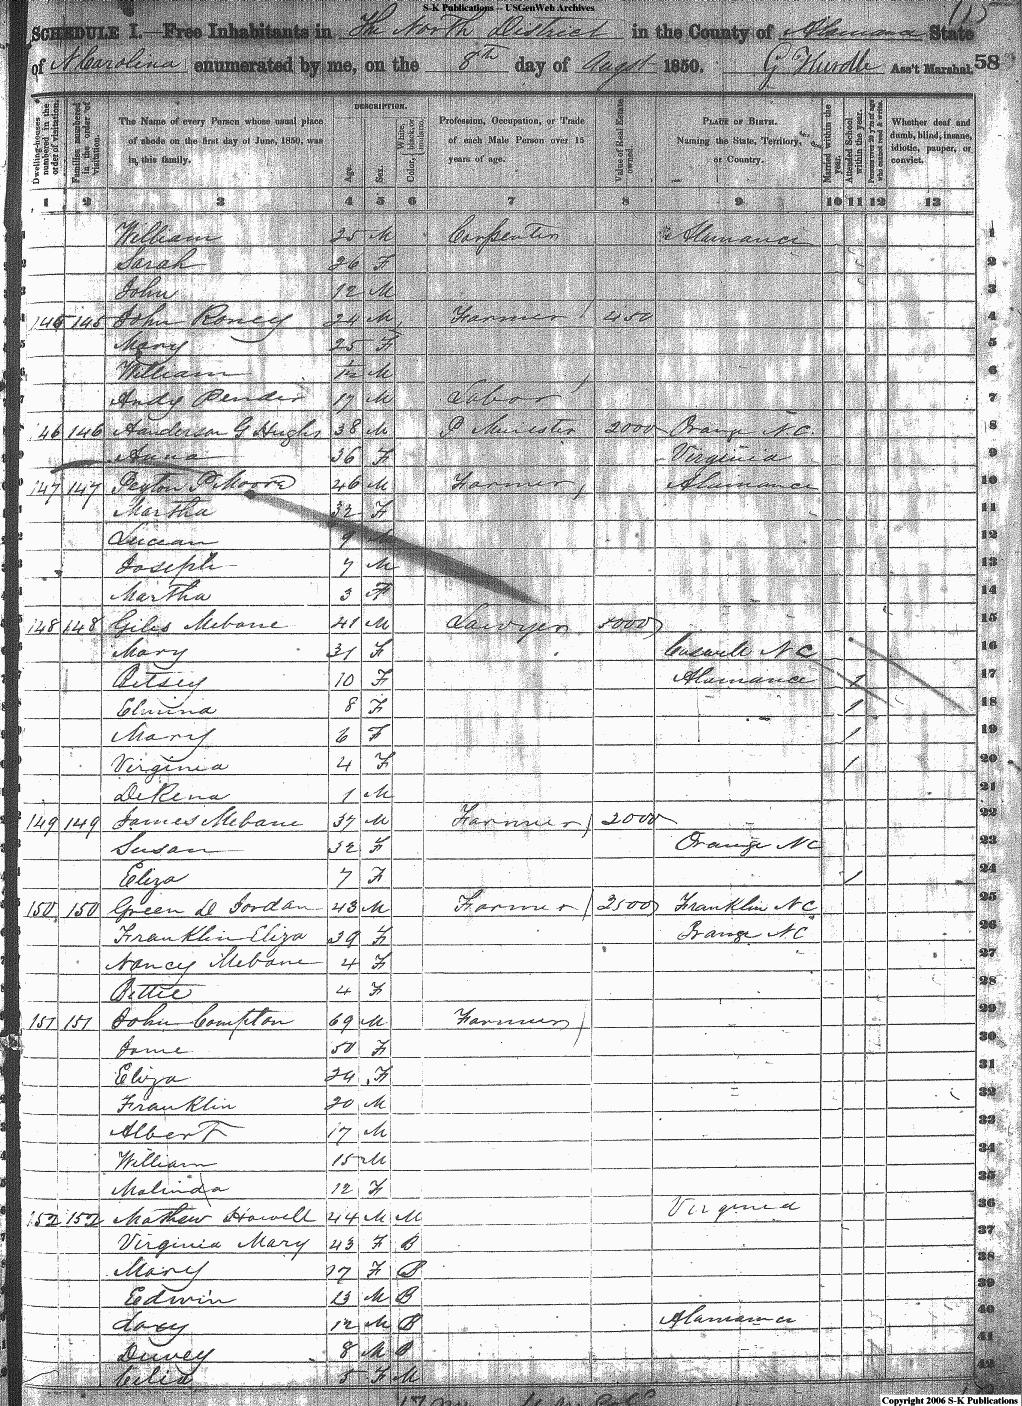 S-K Publications -- USGenWeb Archives
115
SCHEDULE I.—Free Inhabitants in The North District in the County of Alamance State
of N Carolina enumerated by me, on the 8th day of Augst 1850. G Hurdle Ass't Marshal. 58
Dwelling-houses numbered in the order of visitation.
Families numbered in the order of visitation.
The Name of every Person whose usual place of abode on the first day of June, 1850, was in this family.
DESCRIPTION.
Age.
Sex.
Color, White, black, or mulatto.
Profession, Occupation, or Trade of each Male Person over 15 years of age.
Value of Real Estate owned.
PLACE OF BIRTH. Naming the State, Territory, or Country.
Married within the year.
Attended School within the year.
Persons over 20 y'rs of age who cannot read & write.
Whether deaf and dumb, blind, insane, idiotic, pauper, or convict.
1 2 3 4 5 6 7 8 9 10 11 12 13
William 25 M Carpenter Alamance 1
Sarah 26 F 2
John 12 M 3
145 145 John Roney 24 M Farmer 450 4
Mary 25 F 5
William M 6
Andy Render 17 M Labor 7
146 146 Anderson G Hughs 38 M P Minister 2000 Orange N.C. 8
Anna 36 F Virginia 9
147 147 Peyton P Moore 46 M Farmer Alamance 10
Martha 32 F 11
Lucean 9 M 12
Joseph 7 M 13
Martha 3 F 14
148 148 Giles Mebane 41 M Lawyer 5000 15
Mary 31 F Caswell N C 16
Betsey 10 F Alamance 1 17
Elmina 8 F 1 18
Mary 6 F 1 19
Virginia 4 F 1 20
DeRena 1 M 21
149 149 James Mebane 37 M Farmer 2000 22
Susan 32 F Orange N C 23
Eliza 7 F 1 24
150 150 Green D Jordan 43 M Farmer 2500 Franklin N C 25
Franklin Eliza 39 F Orange N C 26
Nancy Mebane 4 F 27
Bettie 4 F 28
151 151 John Compton 69 M Farmer 29
Jame 50 F 30
Eliza 24 F 31
Franklin 20 M 32
Albert 17 M 33
William 15 M 34
Malinda 12 F 35
152 152 Mathew Howell 44 M M Virginia 36
Virginia Mary 43 F B 37
Mary 17 F B 38
Edwin 13 M B 39
Loxy 12 M B Alamance 40
Duvey 8 M B 41
Celia 5 F M 42
Copyright 2006 S-K Publications